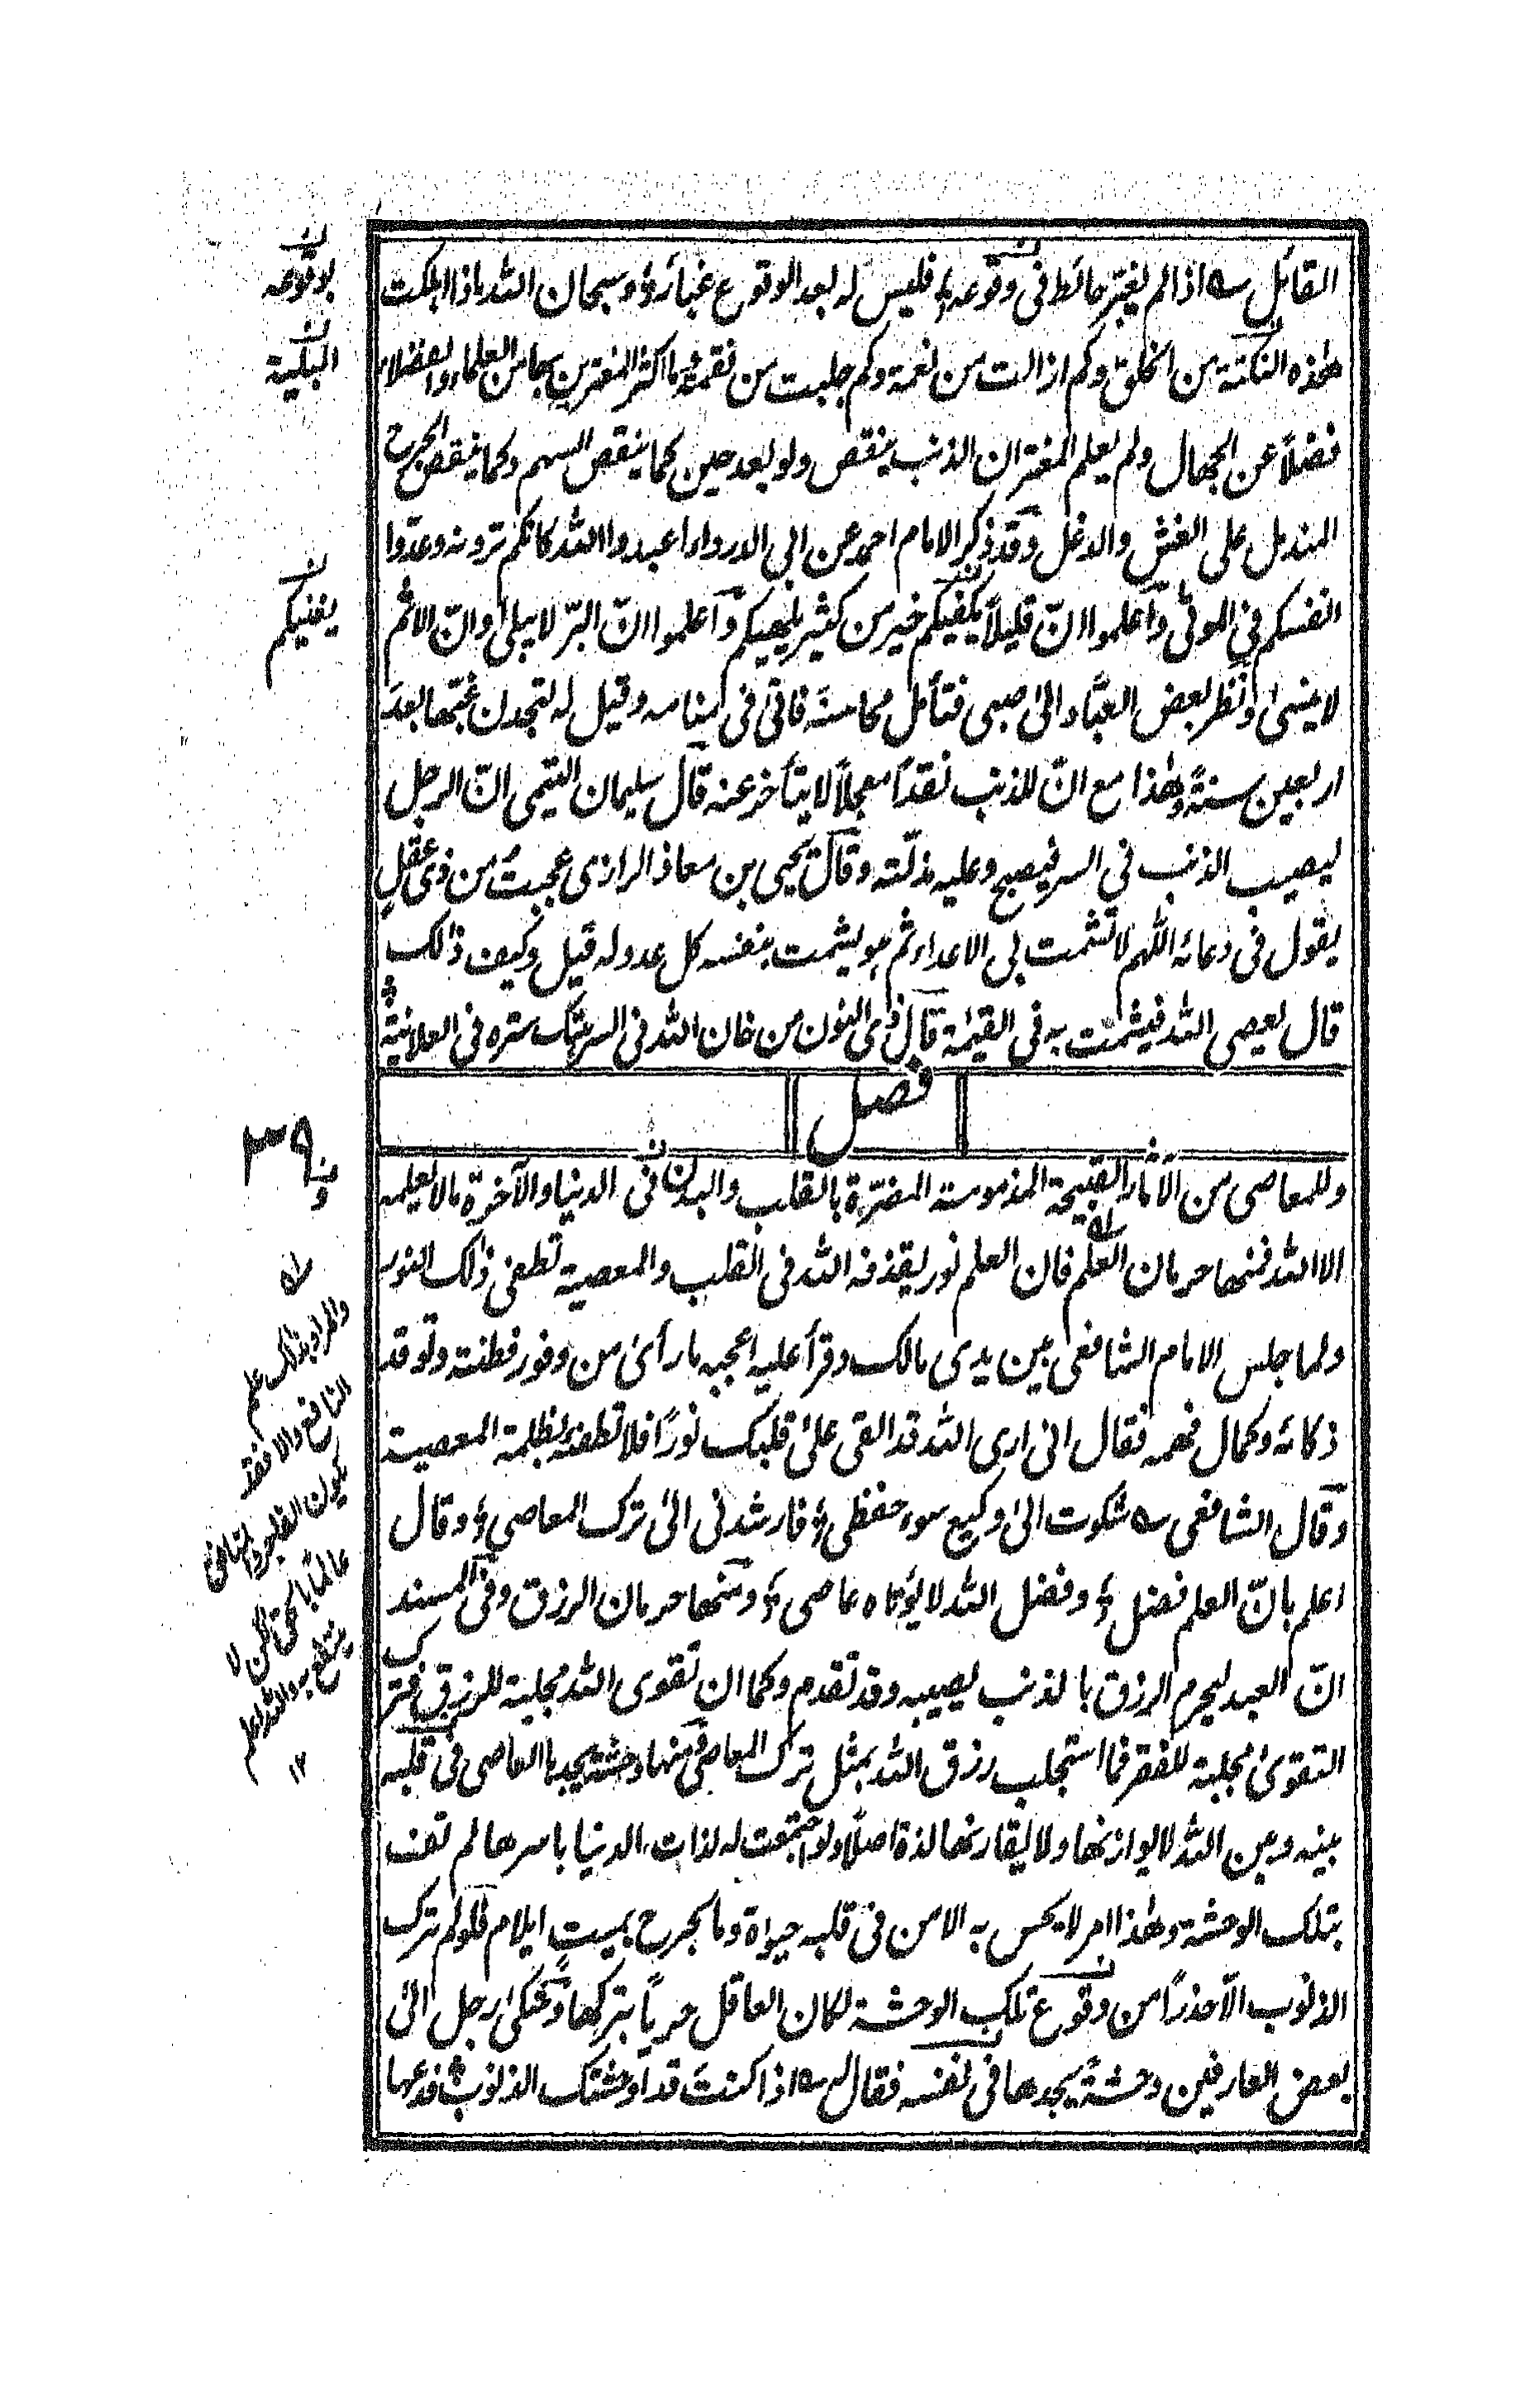 القائل ؎ اذا لم يغبّر حائط فى وقوعه ؛ فليس له بعد الوقوع غبار ؛ وسبحان الله ماذا اهلكت
هٰذه النكتة من الخلق وكم ازالت من نعمة وكم جلبت من نقمة وما اكثر المغترين بها من العلماء والفضلاء
فضلاً عن الجهال ولم يعلم المغتر ان الذنب ينقض ولو بعد حين كما ينقض السهم وكما ينقض الجرح
المندمل على الغش والدغل وقد ذكر الامام احمد عن ابى الدرداء اعبدوا الله كانكم ترونه وعدّوا
انفسكم فى الموتٰى واعلموا انّ قليلاً يكفيكم خير من كثير يلهيكم واعلموا انّ البرّ لا يبلى وانّ الاثم
لا ينسٰى ونظر بعض العبّاد الىٰ صبى فتأمل محاسنه فاتى فى منامه وقيل له لتجدن غبّها بعد
اربعين سنة وهٰذا مع انّ للذنب نقداً معجلاً لا يتأخر عنه قال سليمان التيمى انّ الرجل
ليصيب الذنب فى السر فيصبح وعليه مذلّته وقال يحيى بن معاذ الرازى عجبتُ من ذى عقلٍ
يقول فى دعائه اللهم لا تشمت بى الاعداء ثم هو يشمت بنفسه كل عدو له قيل وكيف ذٰلك
قال يعصى الله فيشمت به فى القيمٰة قال ذى النون من خان الله فى السر هتك ستره فى العلانية
فصل
وللمعاصى من الآثار القبيحة المذمومة المضرّة بالقلب والبدن فى الدنيا والآخرة مالا يعلمه
الا الله فمنها حرمان العلم فان العلم نور يقذفه الله فى القلب والمعصية تطفئ ذٰلك النور
ولما جلس الامام الشافعى بين يدى مالك وقرأ عليه اعجبه ما رأىٰ من وفور فطنته وتوقد
ذكائه وكمال فهمه فقال انى ارى الله قد القى علىٰ قلبك نوراً فلا تطفئه بظلمة المعصية
وقال الشافعى ؎ شكوت الىٰ وكيع سوء حفظى ؛ فارشدنى الىٰ ترك المعاصى ؛ وقال
اعلم بانّ العلم فضل ؛ وفضل الله لا يؤتاه عاصى ؛ ومنها حرمان الرزق وفى المسند
انّ العبد ليحرم الرزق بالذنب يصيبه وقد تقدم وكما ان تقوى الله مجلبة للرزق فترك
التقوىٰ مجلبة للفقر فما استجلب رزق الله بمثل ترك المعاصى ومنها وحشة يجدها العاصى فى قلبه
بينه وبين الله لا يوازنها ولا يقارنها لذة اصلاً ولو اجتمعت له لذات الدنيا باسرها لم تف
بتلك الوحشة وهٰذا امر لا يحس به الا من فى قلبه حيٰوة وما لجرح بميت ايلام فلو لم تترك
الذنوب الّا حذراً من وقوع تلك الوحشة لكان العاقل حرياً بتركها وشكىٰ رجل الىٰ
بعض العارفين وحشةً يجدها فى نفسه فقال له ؎ اذا كنت قد اوحشتك الذنوب فدعها
ن
بوقوعه
ن
البلية
ن
يغنيكم
٣٩
والمراد بذلك علم
النافع والا فقد
يكون الفاجر والفاسق
عالماً لكن لا
ينتفع به والله اعلم
١٢